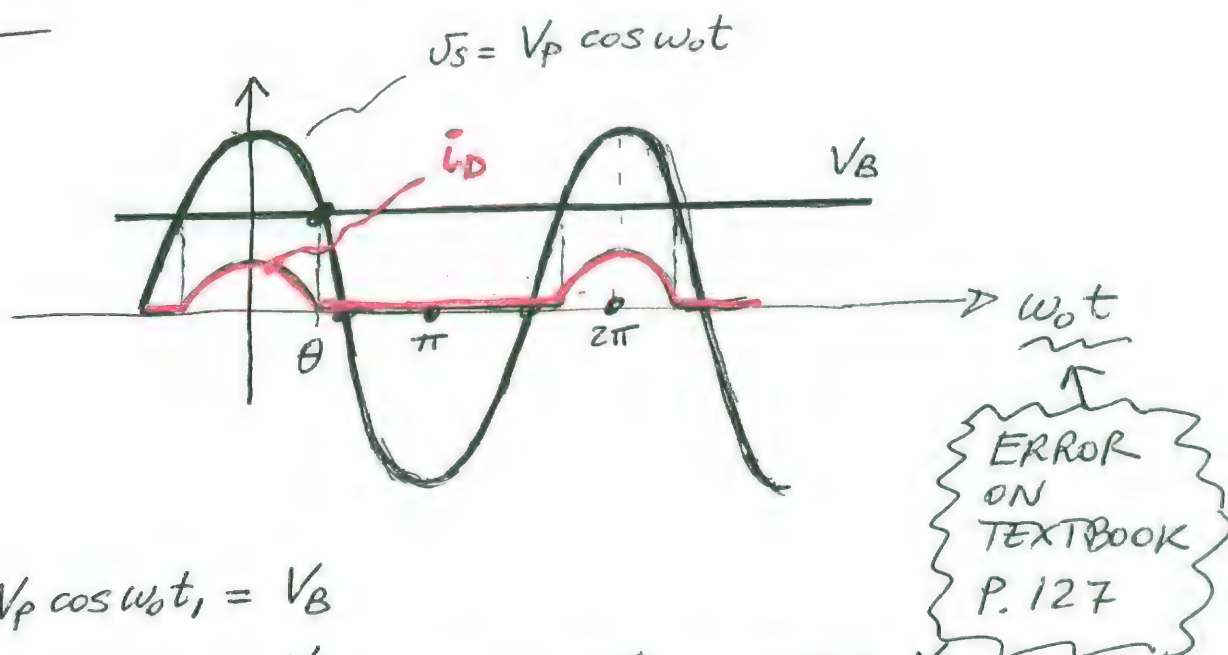 υs = Vp cos ω₀t
iD
VB
θ
π
2π
ω₀t
ERROR
ON
TEXTBOOK
P. 127
Vp cos ω₀t₁ = VB